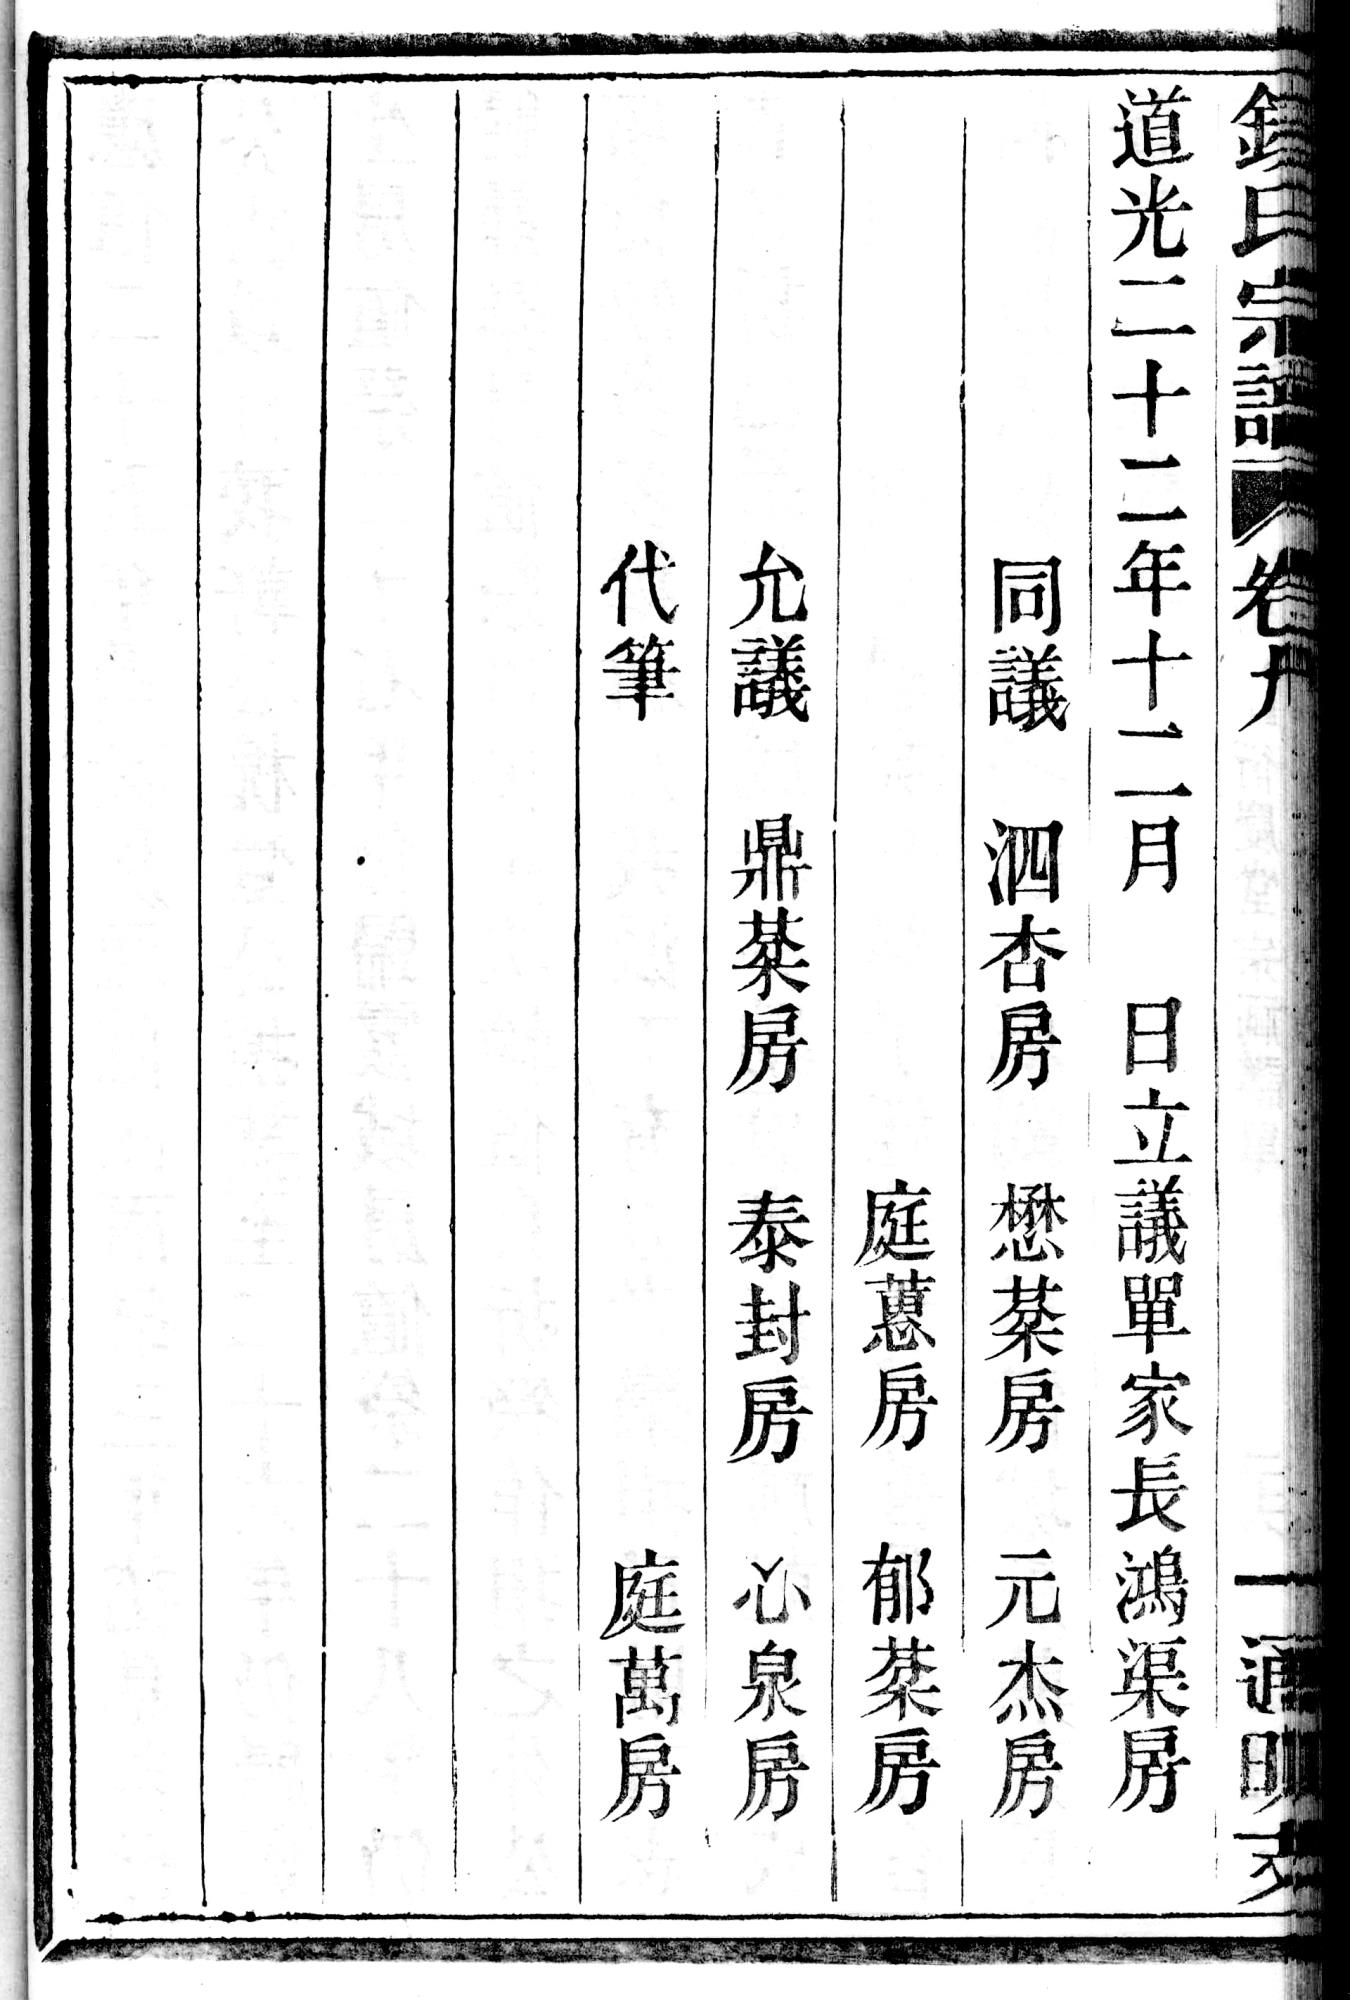 氏宗譜 卷九 一 通明支
道光二十二年十二月 日立議單家長鴻渠房
同議 泗杏房 懋菜房 元杰房
庭蕙房 郁菜房
允議 鼎菜房 泰封房 心泉房
代筆 庭萬房